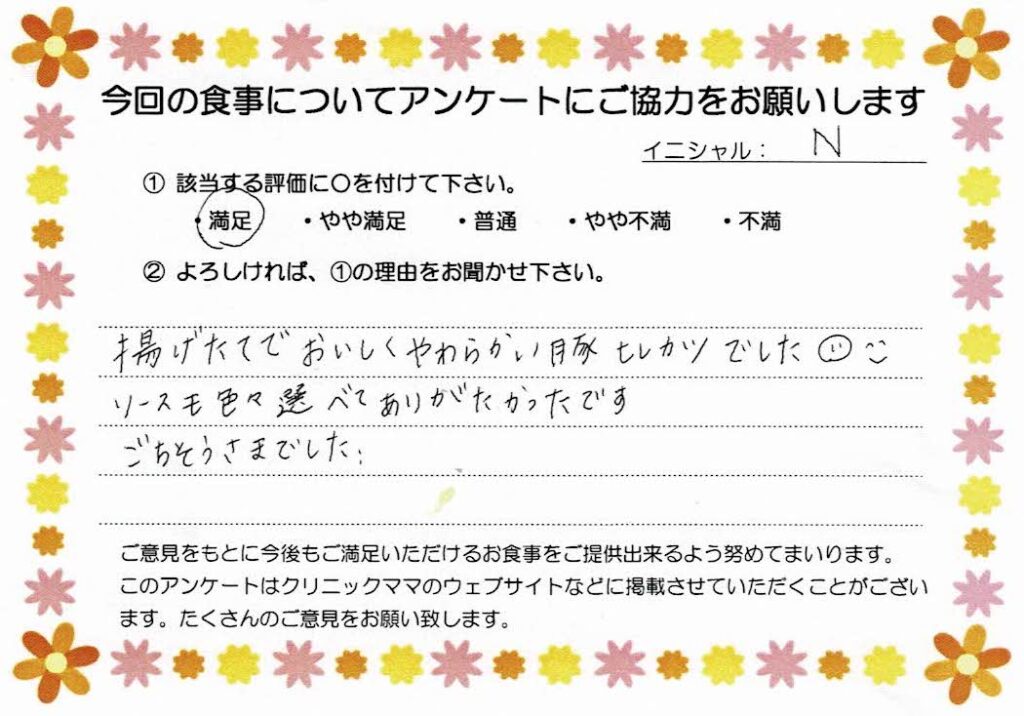 今回の食事についてアンケートにご協力をお願いします
イニシャル： N
① 該当する評価に〇を付けて下さい。
・満足 ・やや満足 ・普通 ・やや不満 ・不満
② よろしければ、①の理由をお聞かせ下さい。
揚げたてでおいしくやわらかい豚ヒレカツでした
ソースも色々選べてありがたかったです
ごちそうさまでした
ご意見をもとに今後もご満足いただけるお食事をご提供出来るよう努めてまいります。
このアンケートはクリニックママのウェブサイトなどに掲載させていただくことがござい
ます。たくさんのご意見をお願い致します。